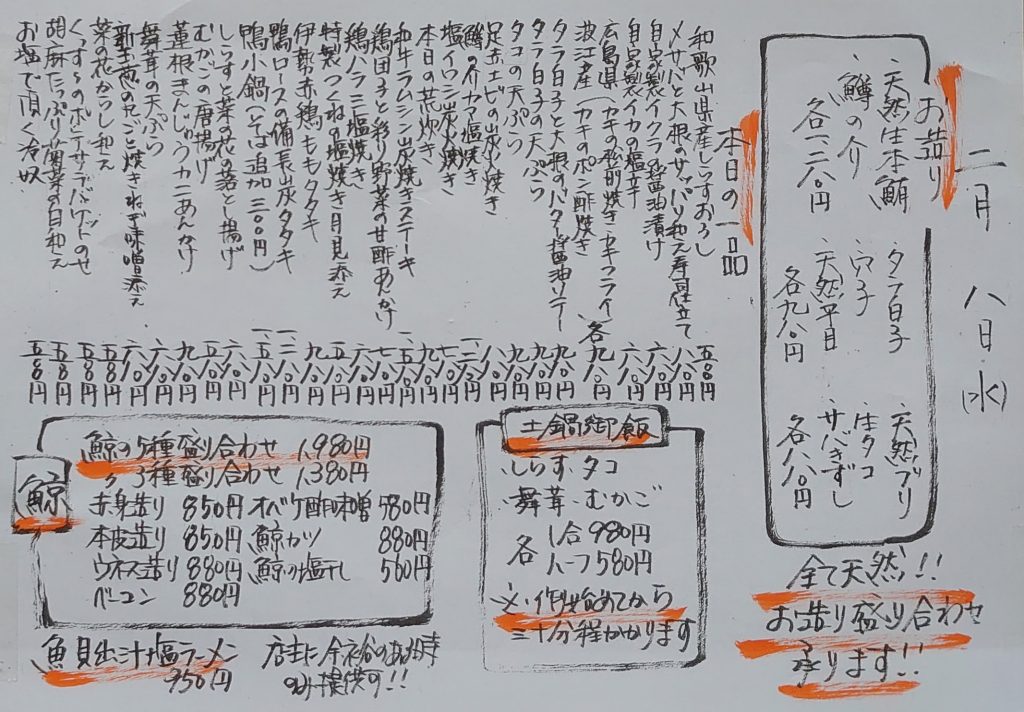 二月 八日(水)
お造り
天然生本鮪
鱒の介
各一二八〇円
タラ白子
穴子
天然平目
各九八〇円
天然ブリ
生タコ
サバきずし
各八八〇円
全て天然!!
お造り盛り合わせ
承ります!!
本日の一品
和歌山県産しらすおろし 五八〇円
〆サバと大根のサッパリ和え寿司仕立て 八八〇円
自家製イクラの醤油漬け 九八〇円
自家製イカの塩辛 六八〇円
広島県(カキの松前焼き カキフライ
波江産(カキのポン酢焼き 各九八〇円
タラ白子と大根のバター醤油ソテー
タラ白子の天ぷら
タコの天ぷら
足赤エビの炭火焼き
鱒の介カマ塩焼き
塩イワシ炭火焼き
本日の荒炊き
和牛ラムシン炭焼きステーキ
鶏団子と彩り野菜の甘酢あんかけ
鶏ハラミ塩焼き
特製つくねの塩焼き月見添え
伊勢赤鶏ももタタキ
鴨ロースの備長炭タタキ
鴨小鍋(そば追加 三〇〇円)
しらすと菜の花の落とし揚げ
むかごの唐揚げ
蓮根まんじゅうカニあんかけ
舞茸の天ぷら
新玉葱の丸ごと焼きねぎ味噌添え
菜の花からし和え
くんずりのポテサラバゲットのせ
胡麻たっぷり菊菜の白和え
お塩で頂く冷奴
鯨
鯨の5種盛り合わせ 1,980円
〃 3種盛り合わせ 1,380円
赤身造り 850円 オバケ酢味噌 580円
本皮造り 850円 鯨カツ 880円
ウネス造り 880円 鯨の塩干し 560円
ベーコン 880円
魚貝出汁塩ラーメン 950円
店主に余裕のある時
のみ提供可!!
土鍋御飯
・しらす・タコ
・舞茸・むかご
各 1合980円
ハーフ580円
※作り始めてから
三十分程かかります